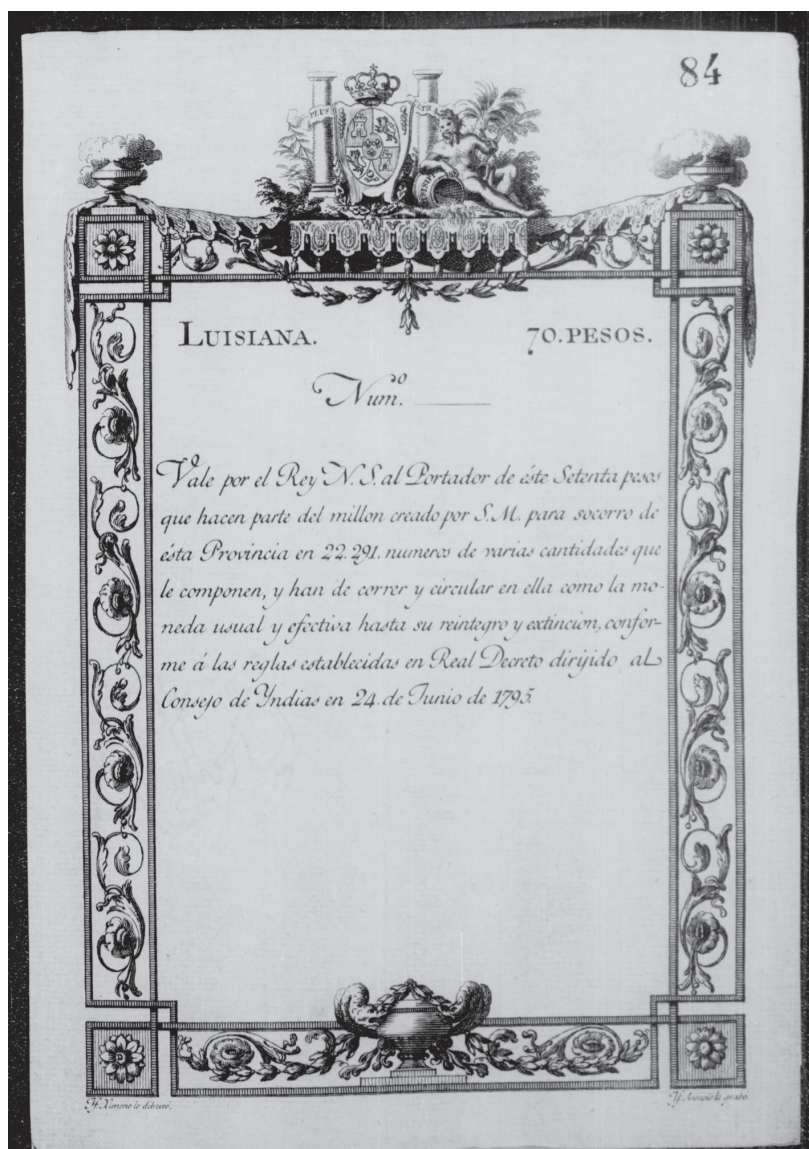 84
PLUS
LUISIANA. 70. PESOS.
Num.º
Vale por el Rey N. S. al Portador de éste Setenta pesos
que hacen parte del millon creado por S. M. para socorro de
ésta Provincia en 22.291. numeros de varias cantidades que
le componen, y han de correr y circular en ella como la mo-
neda usual y efectiva hasta su reintegro y extincion, confor-
me á las reglas establecidas en Real Decreto dirijido al
Consejo de Yndias en 24. de Junio de 1795.
Ximeno lo dibuxó.
lo grabó.